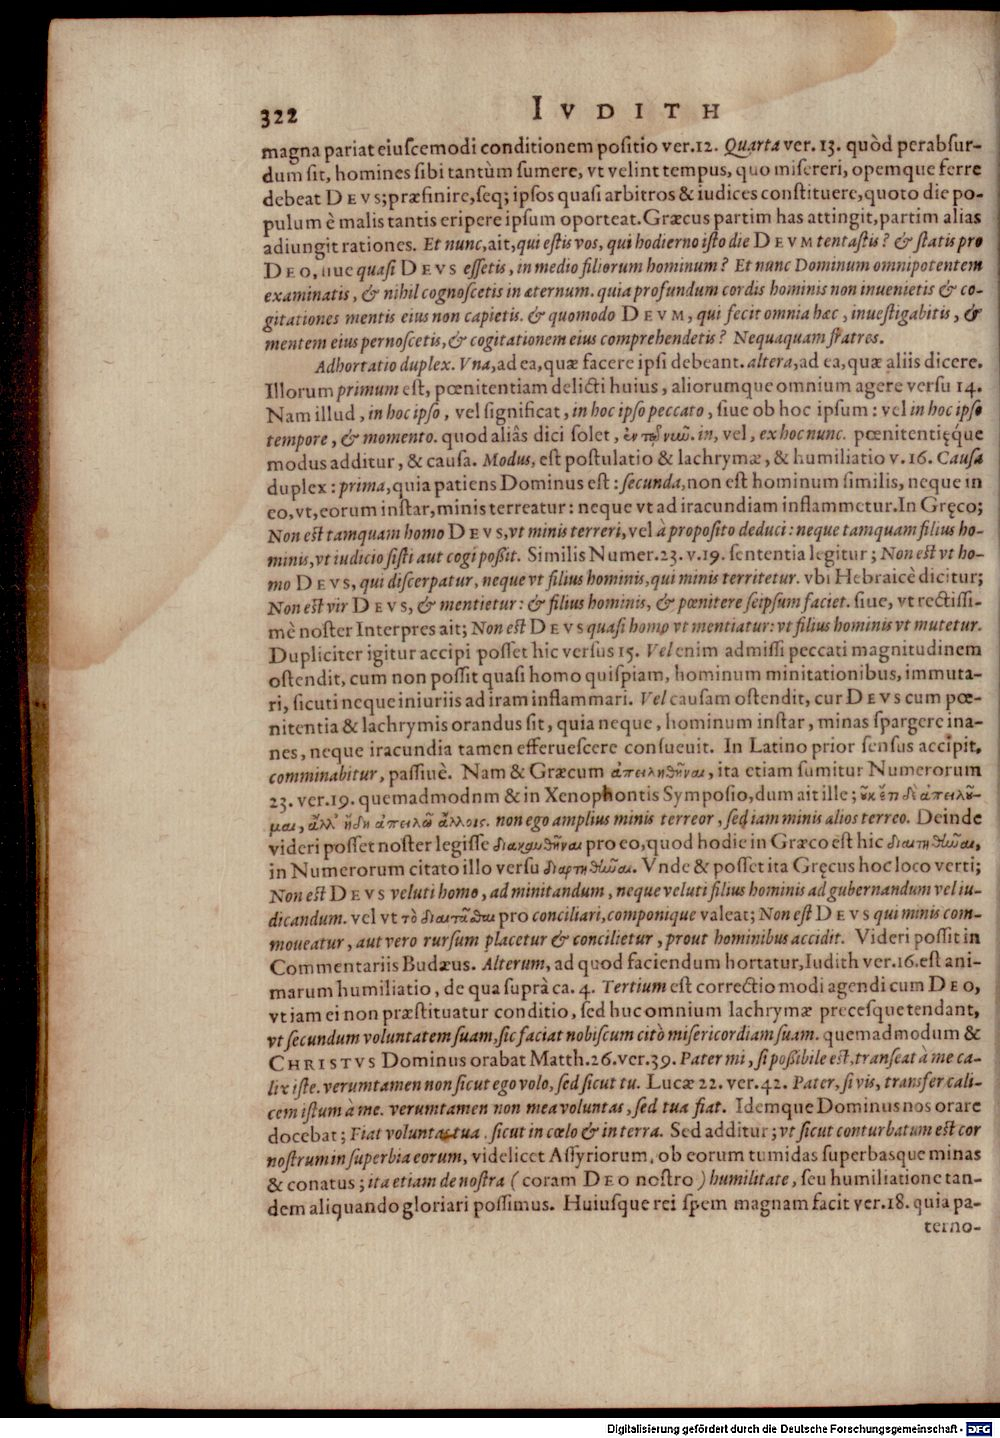 322 IVDITH
magna pariat eiuſcemodi conditionem poſitio ver.12. Quarta ver. 13. quòd perabſur-
dum ſit, homines ſibi tantùm ſumere, vt velint tempus, quo miſereri, opemque ferre
debeat DEVS;præfinire,ſeq; ipſos quaſi arbitros & iudices conſtituere,quoto die po-
pulum è malis tantis eripere ipſum oporteat.Græcus partim has attingit,partim alias
adiungit rationes. Et nunc,ait,qui eſtis vos, qui hodierno iſto die DEVM tentaſtis? & ſtatis pro
DEO, quaſi DEVS eſſetis, in medio filiorum hominum? Et nunc Dominum omnipotentem
examinatis, & nihil cognoſcetis in æternum. quia profundum cordis hominis non inuenietis & co-
gitationes mentis eius non capietis. & quomodo DEVM, qui fecit omnia hæc, inueſtigabitis, &
mentem eius pernoſcetis,& cogitationem eius comprehendetis? Nequaquam fratres.
Adhortatio duplex. Vna,ad ea,quæ facere ipſi debeant. altera,ad ea,quæ aliis dicere.
Illorum primum eſt, pœnitentiam delicti huius, aliorumque omnium agere verſu 14.
Nam illud, in hoc ipſo, vel ſignificat, in hoc ipſo peccato, ſiue ob hoc ipſum: vel in hoc ipſo
tempore, & momento. quod aliâs dici ſolet, in, vel, ex hoc nunc. pœnitentięq́ue
modus additur, & cauſa. Modus, eſt poſtulatio & lachrymæ, & humiliatio v. 16. Cauſa
duplex: prima,quia patiens Dominus eſt: ſecunda,non eſt hominum ſimilis, neque in
eo,vt,eorum inſtar,minis terreatur: neque vt ad iracundiam inflammetur.In Gręco;
Non eſt tamquam homo DEVS,vt minis terreri,vel à propoſito deduci: neque tamquam filius ho-
minis,vt iudicio ſiſti aut cogi poßit. Similis Numer.23. v.19. ſententia legitur; Non eſt vt ho-
mo DEVS, qui diſcerpatur, neque vt filius hominis,qui minis territetur. vbi Hebraicè dicitur;
Non eſt vir DEVS, & mentietur: & filius hominis, & pœnitere ſeipſum faciet. ſiue, vt rectiſſi-
mè noſter Interpres ait; Non eſt DEVS quaſi homo vt mentiatur: vt filius hominis vt mutetur.
Dupliciter igitur accipi poſſet hic verſus 15. Vel enim admiſſi peccati magnitudinem
oſtendit, cum non poſſit quaſi homo quiſpiam, hominum minitationibus, immuta-
ri, ſicuti neque iniuriis ad iram inflammari. Vel cauſam oſtendit, cur DEVS cum pœ-
nitentia & lachrymis orandus ſit, quia neque, hominum inſtar, minas ſpargere ina-
nes, neque iracundia tamen efferueſcere conſueuit. In Latino prior ſenſus accipit,
comminabitur, paſſiuè. Nam & Græcum ἀπειληθῆναι, ita etiam ſumitur Numerorum
23. ver.19. quemadmodnm & in Xenophontis Sympoſio,dum ait ille; ὐκ ἔτι δὴ ἀπειλοῦ-
μαι, ἀλλ' ἤδη ἀπειλῶ ἄλλοις. non ego amplius minis terreor, ſed iam minis alios terreo. Deinde
videri poſſet noſter legiſſe pro eo,quod hodie in Græco eſt hic διαιτηθῆναι,
in Numerorum citato illo verſu διαρτηθῆναι. Vnde & poſſet ita Gręcus hoc loco verti;
Non eſt DEVS veluti homo, ad minitandum, neque veluti filius hominis ad gubernandum vel iu-
dicandum. vel vt τὸ διαιτᾶσθαι pro conciliari,componique valeat; Non eſt DEVS qui minis com-
moueatur, aut vero rurſum placetur & concilietur, prout hominibus accidit. Videri poſſit in
Commentariis Budæus. Alterum, ad quod faciendum hortatur,Iudith ver.16.eſt ani-
marum humiliatio, de qua ſuprà ca. 4. Tertium eſt correctio modi agendi cum DEO,
vt iam ei non præſtituatur conditio, ſed huc omnium lachrymæ preceſque tendant,
vt ſecundum voluntatem ſuam,ſic faciat nobiſcum citò miſericordiam ſuam. quemadmodum &
CHRISTVS Dominus orabat Matth.26.ver.39. Pater mi, ſi poßibile eſt,tranſeat à me ca-
lix iſte. verumtamen non ſicut ego volo, ſed ſicut tu. Lucæ 22. ver.42. Pater, ſi vis, transfer cali-
cem iſtum à me. verumtamen non mea voluntas, ſed tua fiat. Idemque Dominus nos orare
docebat; Fiat voluntas tua. ſicut in cœlo & in terra. Sed additur; vt ſicut conturbatum eſt cor
noſtrum in ſuperbia eorum, videlicet Aſſyriorum, ob eorum tumidas ſuperbasque minas
& conatus; ita etiam de noſtra (coram DEO noſtro) humilitate, ſeu humiliatione tan-
dem aliquando gloriari poſſimus. Huiuſque rei ſpem magnam facit ver.18. quia pa-
terno-
Digitalisierung gefördert durch die Deutsche Forschungsgemeinschaft - DFG